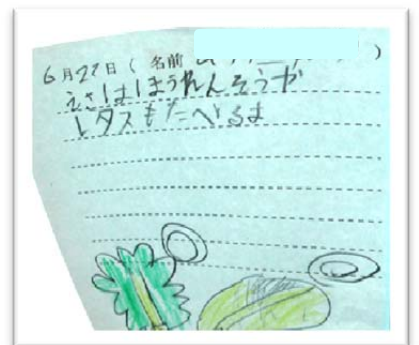 6月27日( 名前 )
えさはほうれんそうや
レタスもたべるよ